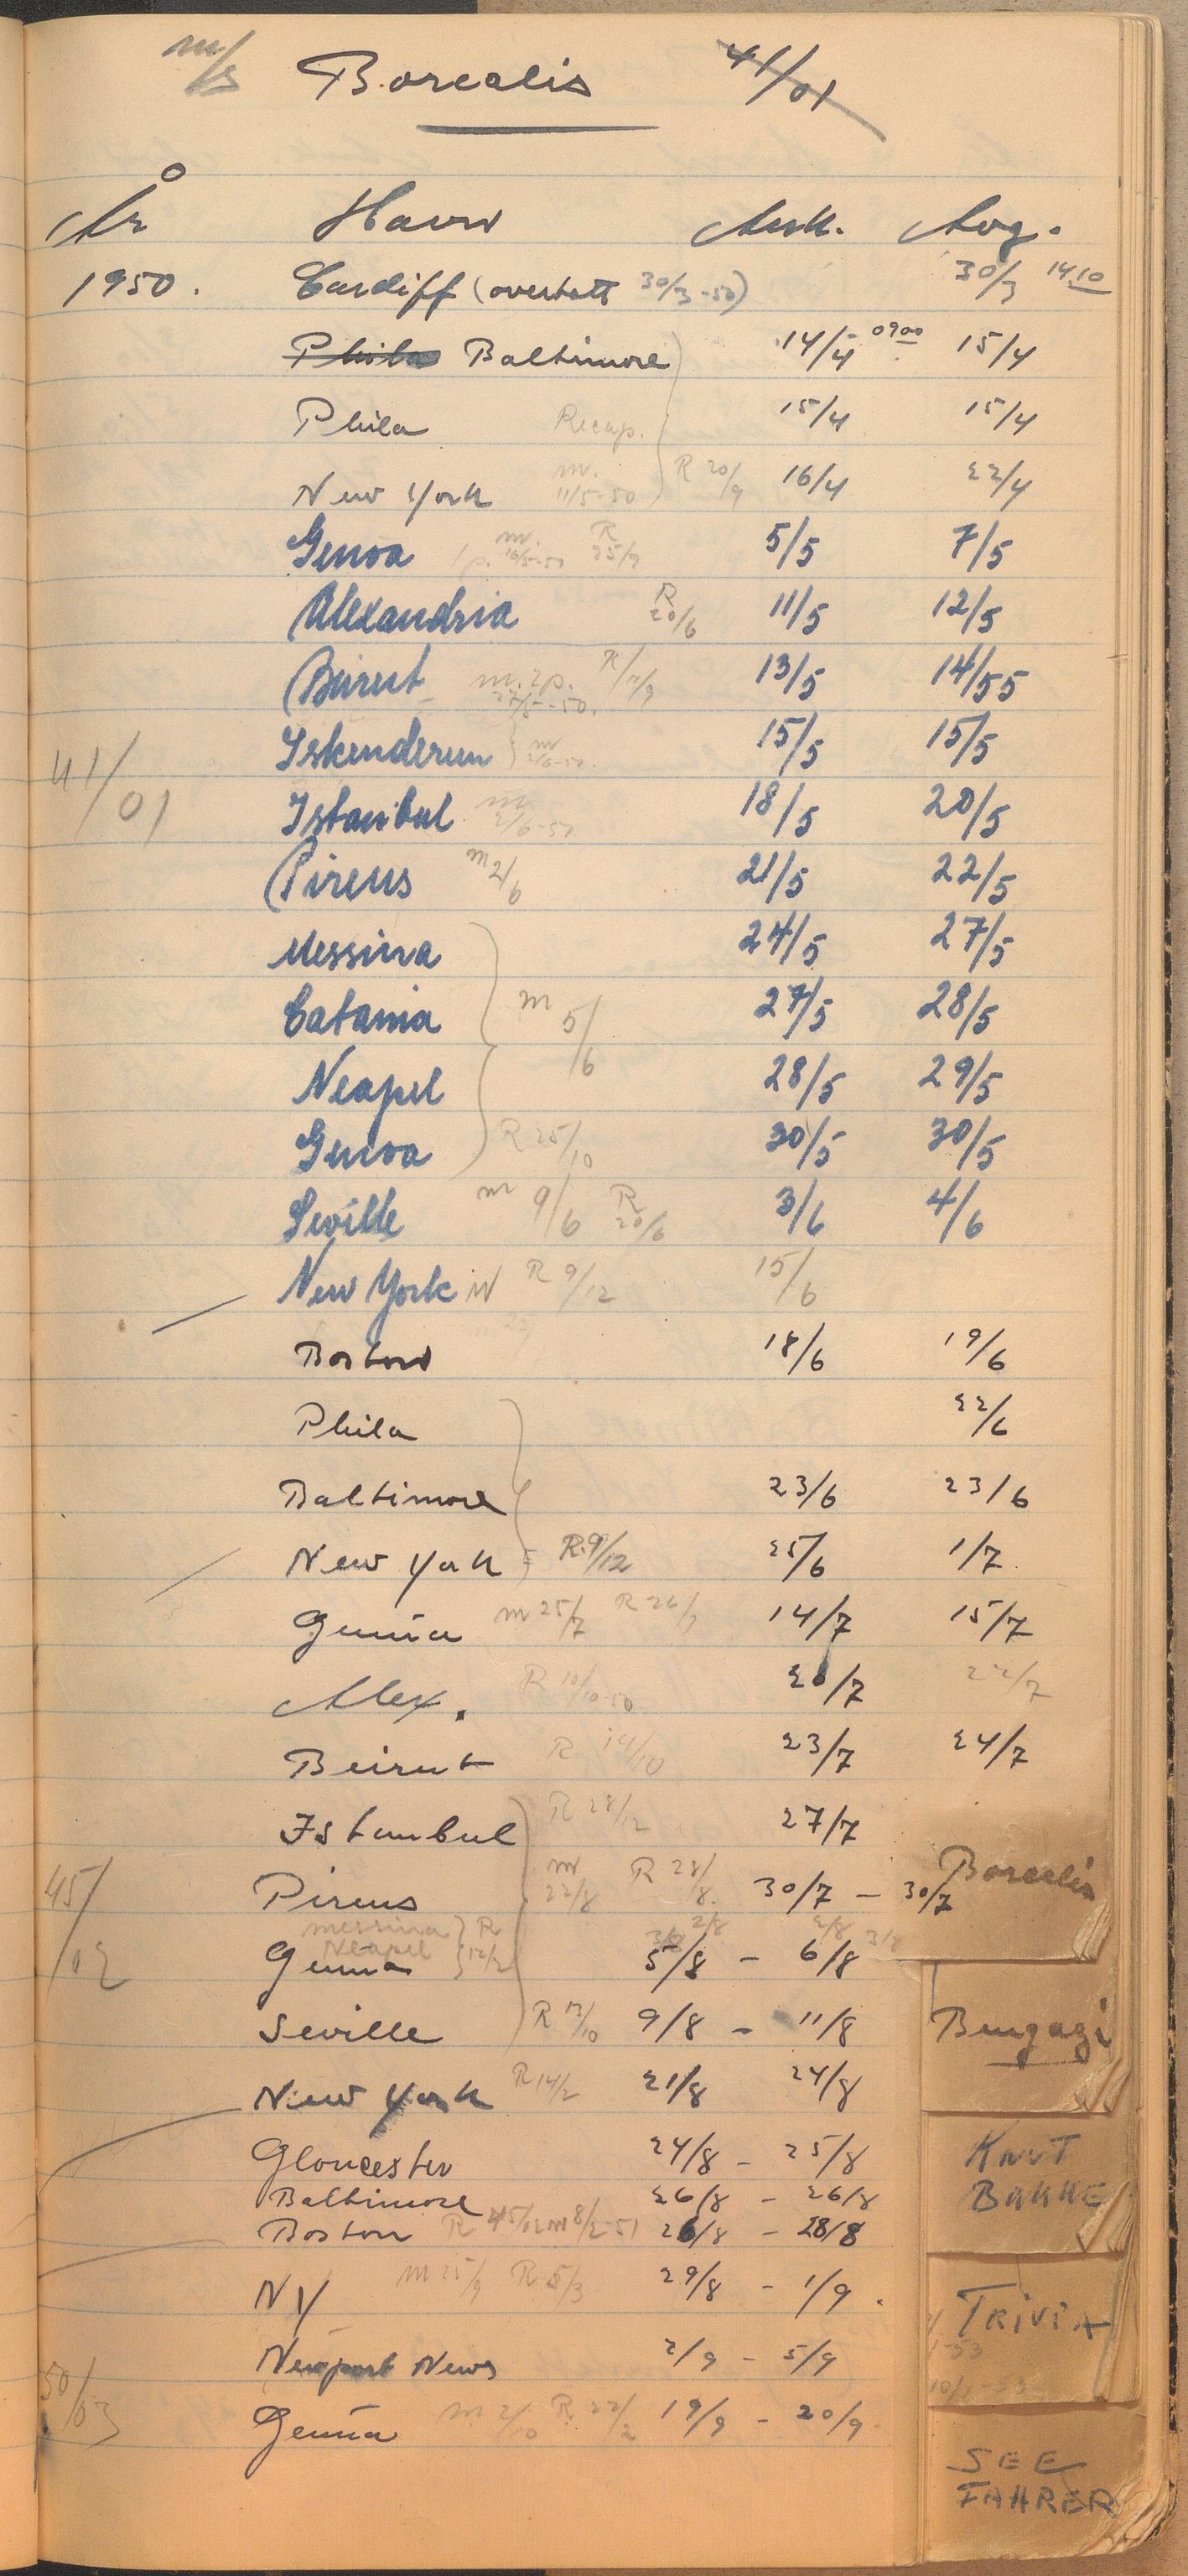 m/s Borealis 41/01
År Havn Ank. Avg.
1950. Cardiff (overtatt 30/3-50) 30/3 14.10
Phila Baltimore 14/4 0900 15/4
Phila Recap. 15/4 15/4
New York m. 11/5-50 R 20/9 16/4 22/4
Genoa 1p. m. 16/5-50 R 25/9 5/5 7/5
Alexandria R 20/6 11/5 12/5
Beirut m. 2p. 27/5-50. R/11/9 13/5 14/55
Iskenderun m 15/5 15/5
41/01
Istanbul m 2/6-50 18/5 20/5
Pireus m 2/6 21/5 22/5
Messina 24/5 27/5
Catania m 5/6 27/5 28/5
Neapel 28/5 29/5
Genoa R 25/10 30/5 30/5
Seville m 9/6 R 20/6 3/6 4/6
New York R 9/12 15/6
Boston 18/6 19/6
Phila 22/6
Baltimore 23/6 23/6
New York R. 9/12 25/6 1/7
Genua m 25/7 R 26/7 14/7 15/7
Alex. R 10/10-50 20/7 22/7
Beirut R 19/10 23/7 24/7
Istanbul R 28/12 27/7
45/02
Pireus m 22/8 R 28/8. 30/7 - 30/7
messina R 2/8 2/8
Neapel 12/2 3/8 3/8
Genua 5/8 - 6/8
Seville R 17/10 9/8 - 11/8
New York R 14/2 21/8 24/8
Gloucester 24/8 - 25/8
Baltimore 26/8 - 26/8
Boston R 45/02 m 8/2-51 26/8 - 28/8
NY m 25/9 R 5/3 29/8 - 1/9.
Newport News 2/9 - 5/9
50/03
Genua m 2/10 R 22/2 19/9 - 20/9
Borealis
Bengazi
KNUT
BAKKE
TRIVIA
10/1-53
SEE
FAHRER